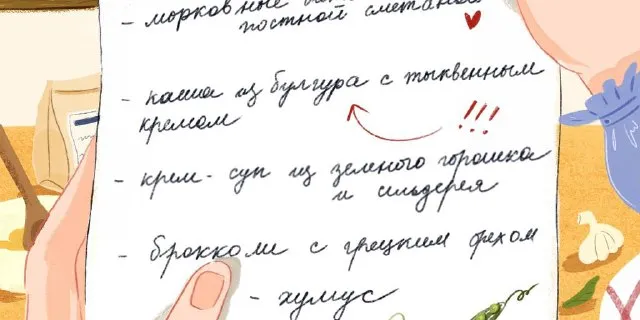 - морковные
постной сметаной
- каша из булгура с тыквенным
кремом
!!!
- крем-суп из зеленого горошка
и сильдерея
- брокколи с грецким орехом
- хумус